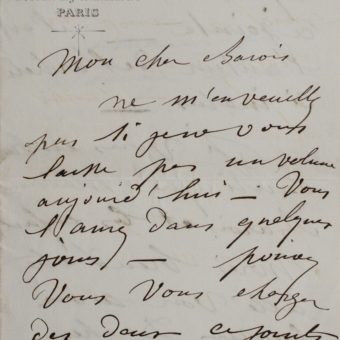 PARIS
Mon cher
ne m'en veuillez
pas si je ne vous
laisse pas un volume
aujourd'hui — Vous
l'aurez dans quelques
jours — pouvez
Vous Vous charger
des deux ci joints